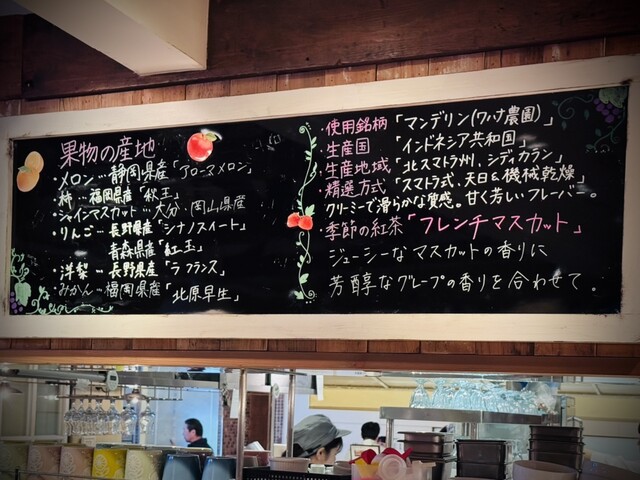 果物の産地
・メロン…静岡県産「アローマメロン」
・柿…福岡県産「秋王」
・シャインマスカット…大分、岡山県産
・りんご…長野県産「シナノスイート」
青森県産「紅玉」
・洋梨…長野県産「ラ フランス」
・みかん…福岡県産「北原早生」
・使用銘柄「マンデリン(ワハナ農園)」
・生産国「インドネシア共和国」
・生産地域「北スマトラ州、シディカラン」
・精選方式「スマトラ式、天日&機械乾燥」
クリーミーで滑らかな質感。甘く芳しいフレーバー。
・季節の紅茶「フレンチマスカット」
ジューシーなマスカットの香りに
芳醇なグレープの香りを合わせて。